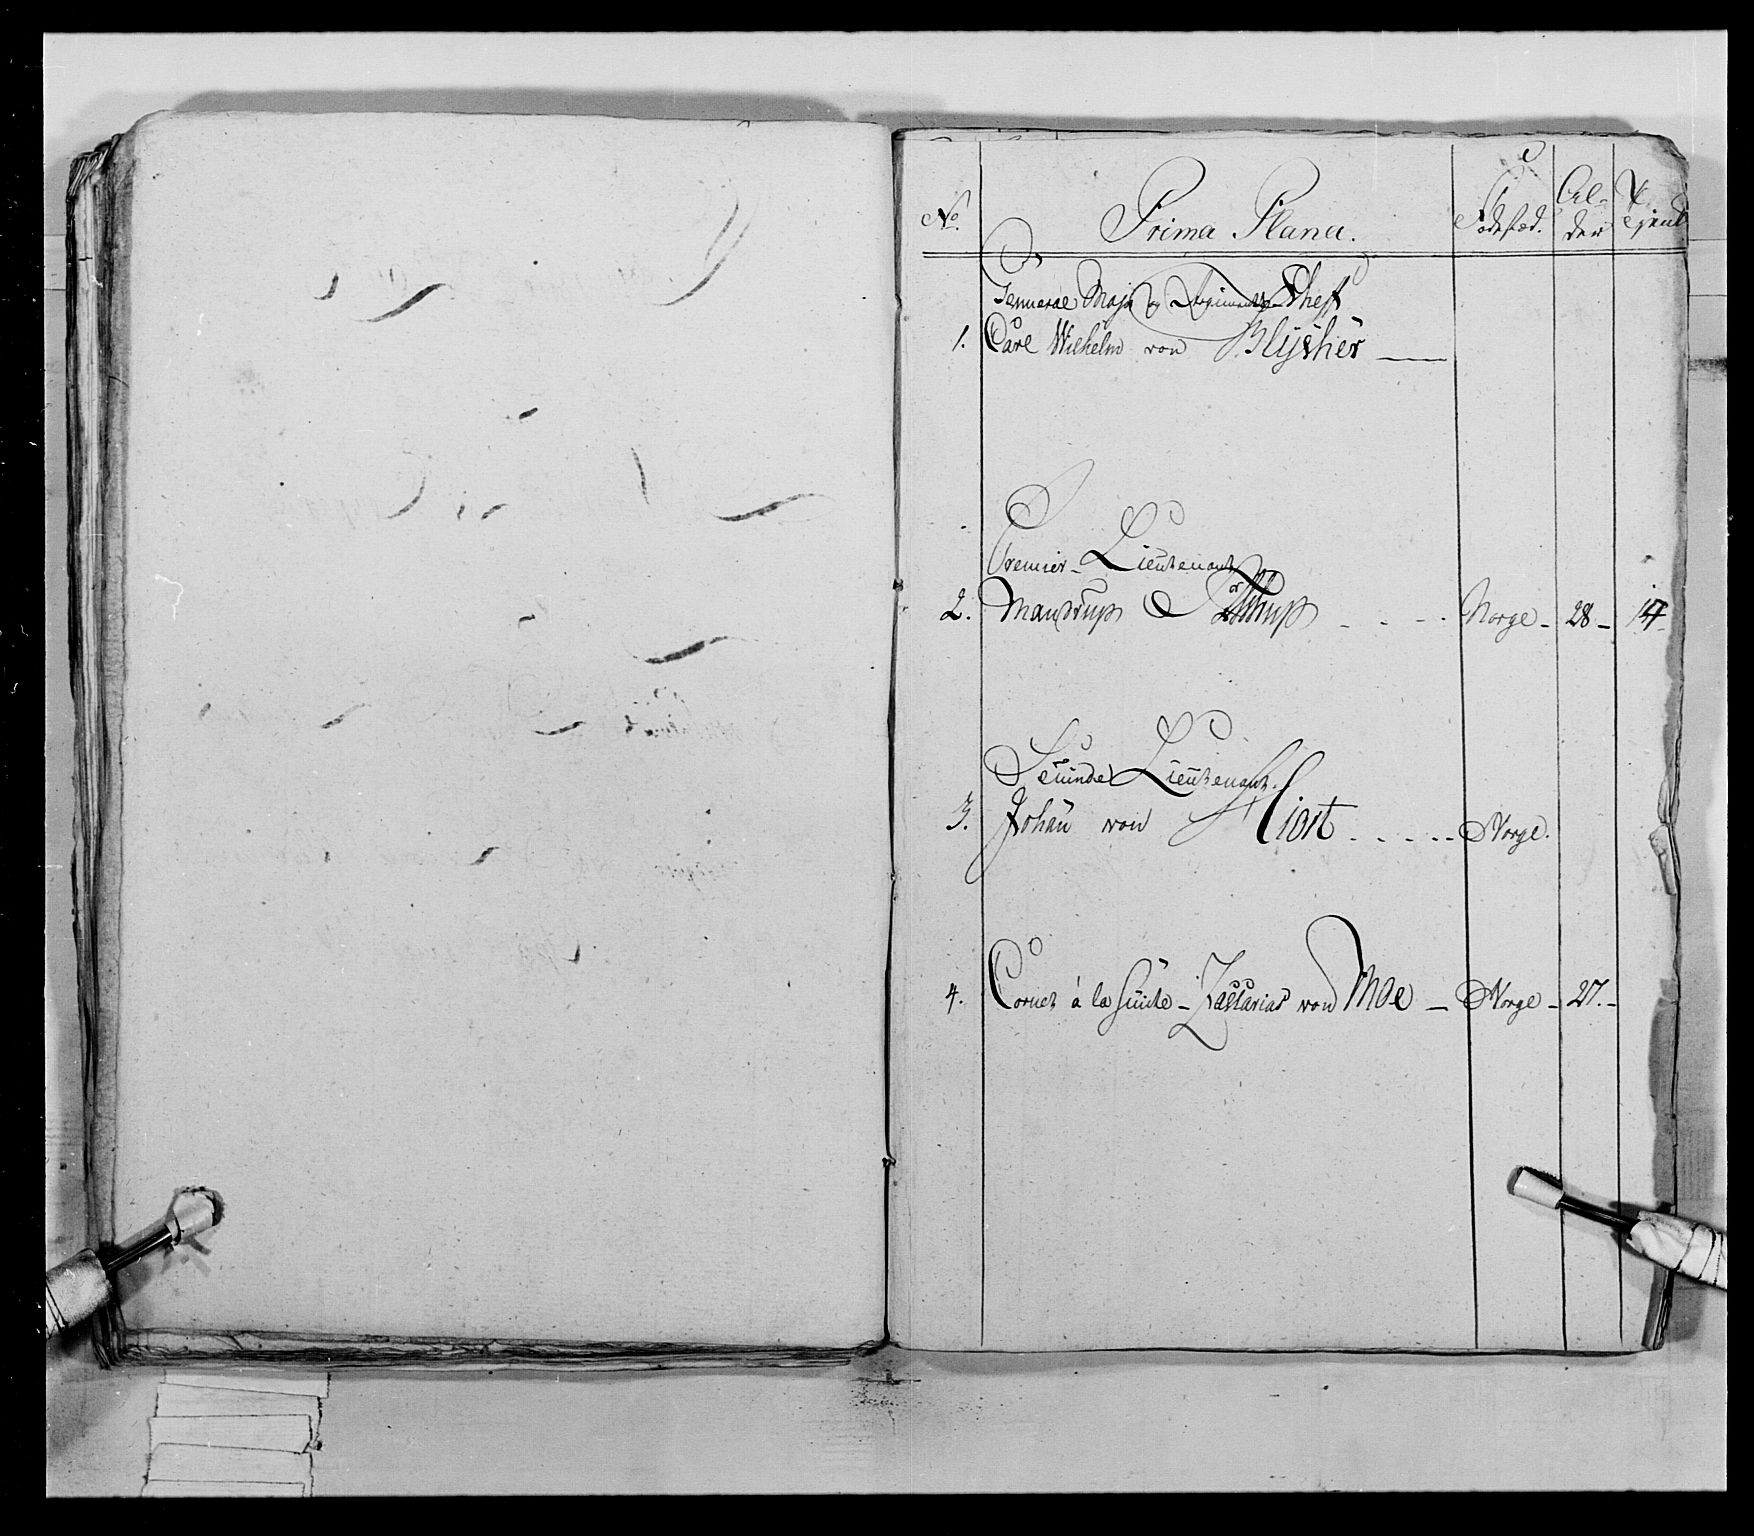 No. Prima Plana. Fødestæd. Al-der Tjenst
Generae Major og Regiments Cheff
1. Carl Wilhelm von Blÿcher
Premier-Lieutenant
2. Mandrup Norge - 28 - 14
Secunde Lieutenant.
3. Johan von Hiort Norge.
4. Cornet á la Suite - Zacharias von Moe - Norge - 27. -